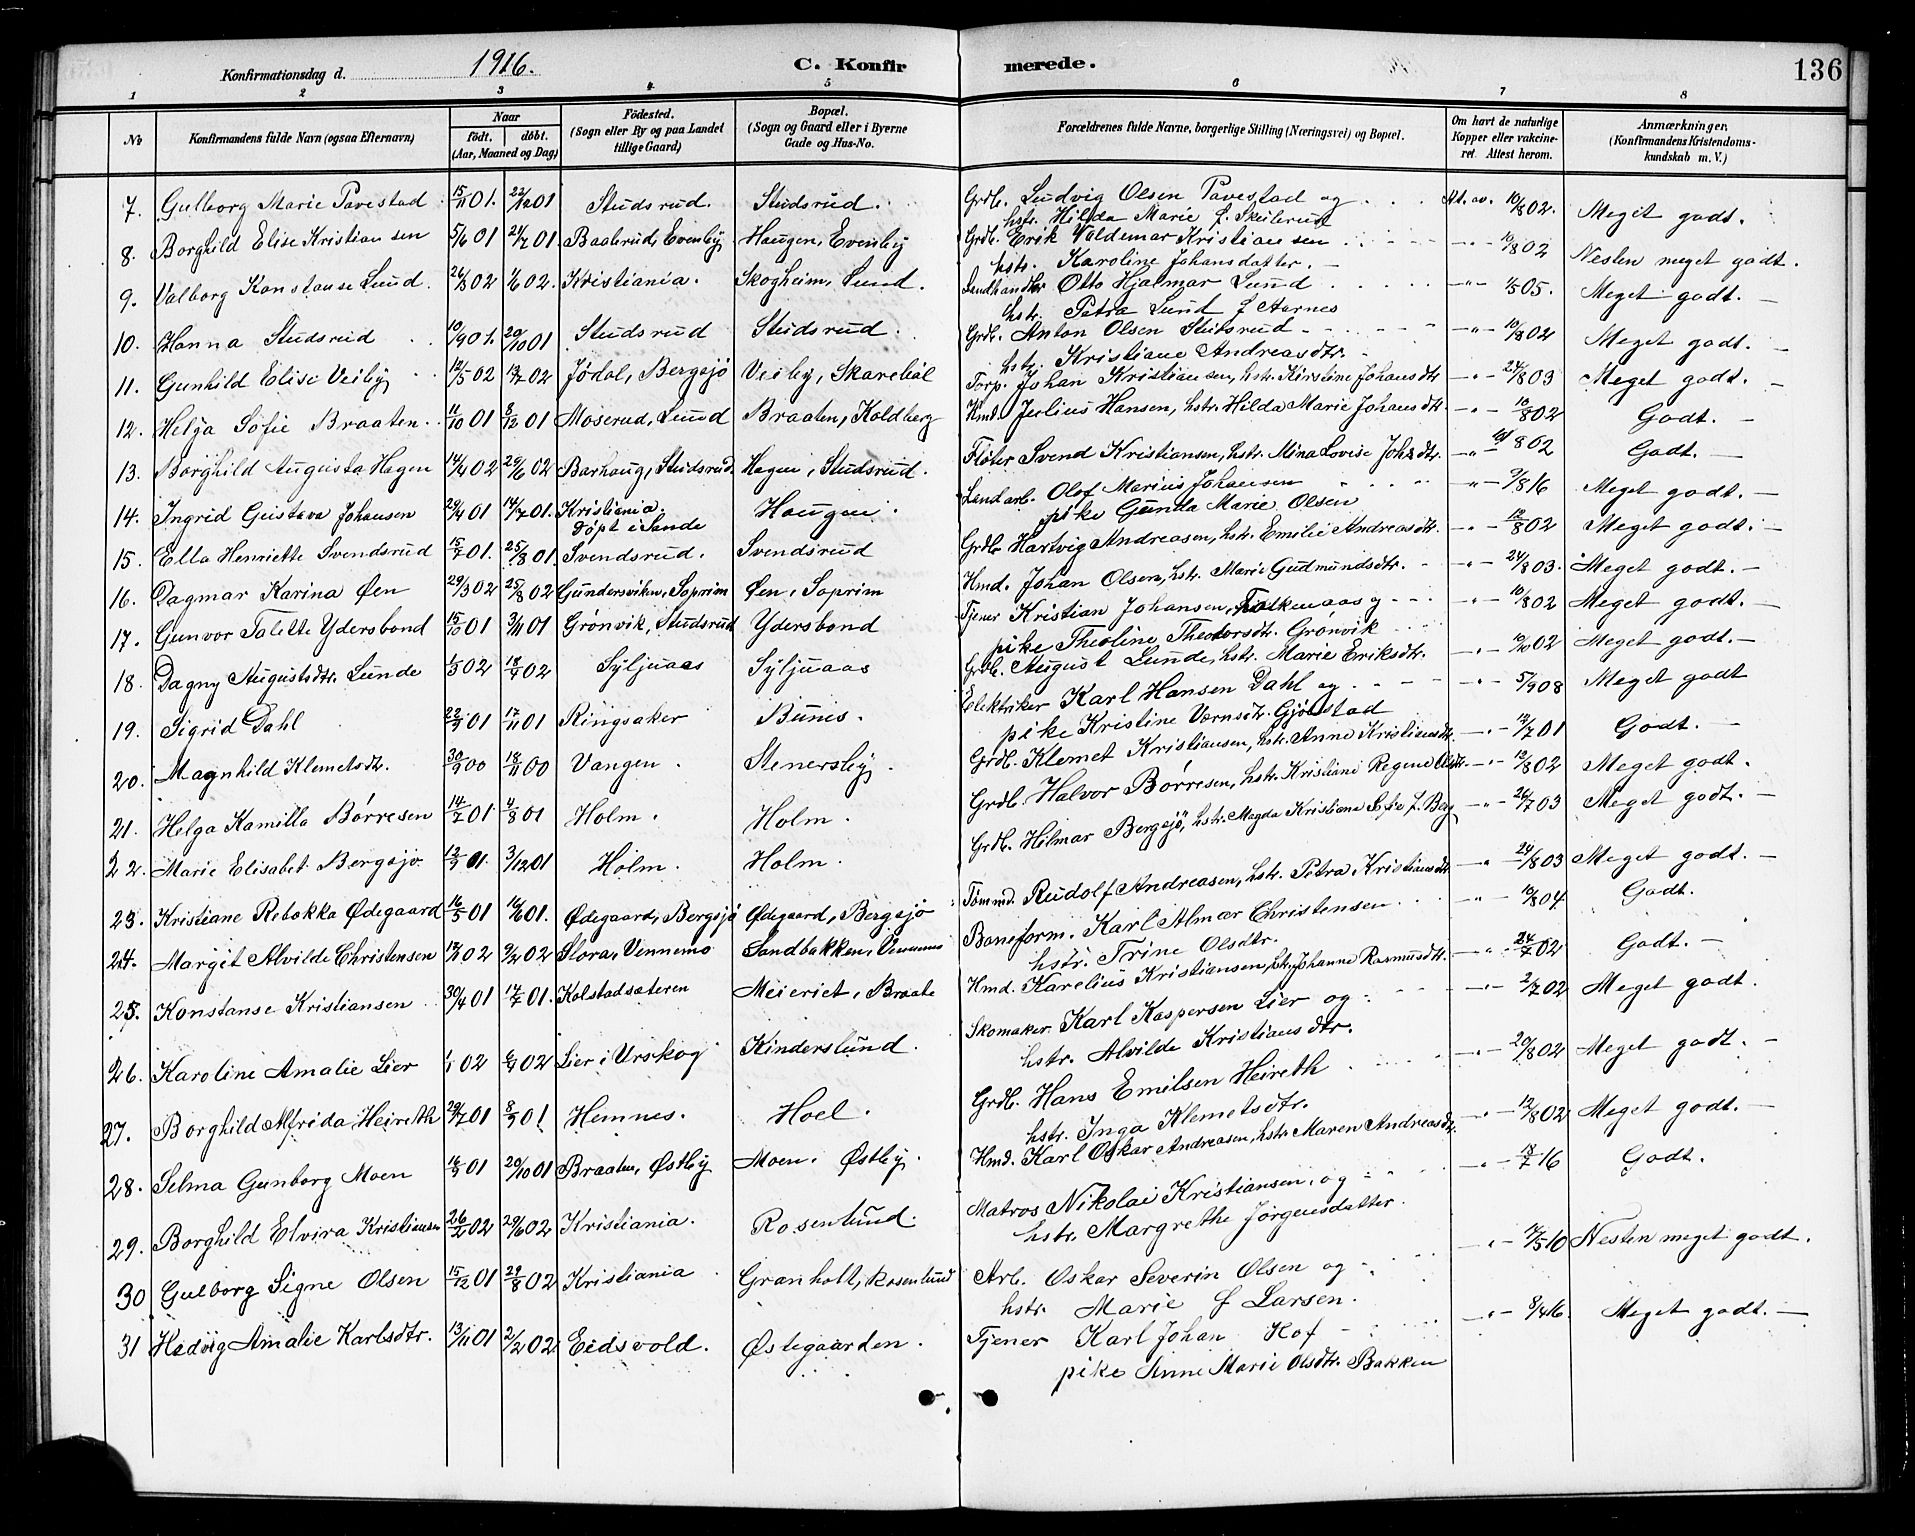 Konfirmationsdag d. 1916. C. Konfirmerede. 136
1 2 3 4 5 6 7 8
No Konfirmandens fulde Navn (ogsaa Efternavn) Naar født. døbt. (Aar, Maaned og Dag) Födested. (Sogn eller By og paa Landet tillige Gaard) Bopæl. (Sogn og Gaard eller i Byerne Gade og Hus-No. Forældrenes fulde Navne, borgerlige Stilling (Næringsvei) og Bopæl. Om havt de naturlige Kopper eller vakcineret. Attest herom. Anmærkninger. (Konfirmandens Kristendomskundskab m. V.)
7. Gulborg Marie Pavestad 15/11 01. 22/12 01 Studsrud. Studsrud. Grdb. Ludvig Olsen Pavestad og At. av. 10/8 02. Meget godt.
hstr. Hilda Marie f. Skeilerud
8. Borghild Elise Kristiansen 5/6 01 21/7 01 Baaberud, Evenby Haugen, Evenby Grdb. Erik Valdemar Kristiansen -"- 10/8 02 Nesten meget godt.
hstr. Karoline Johansdatter.
9. Valborg Konstanse Lund. 26/3 02 1/6 02. Kristiania. Skogheim, Lund. Landhandler Otto Hjalmar Lund -"- 05. Meget godt.
hstr. Petra Lund f Aarnes
10. Hanna Studsrud 10/9 01. 20/10 01 Studsrud Studsrud. Grdb. Anton Olsen Studsrud -"- 10/8 02 Meget godt.
hstr. Kristiane Andreasdtr.
11. Gunhild Elise Veiby 12/5 02 13/7 02 Jödal, Bergsjö Veiby, Skarebøl Torp. Johan Kristiansen, hstr. Kirstine Johansdtr -"- 24/8 03 Meget godt.
12. Helga Sofie Braaten 11/10 01 8/12 01 Moserud, Lund Braaten, Koldberg Hmd. Julius Hansen, hstr. Hilda Marie Johansdtr. -"- 10/8 02 Godt.
13. Borghild Augusta Hagen 14/4 02 29/6 02 Barhaug, Studsrud. Hagen, Studsrud. Fløter Svend Kristiansen, hstr. Mina Lovise Johsdtr. -"- 10/8 02 Godt.
14. Ingrid Gustava Johansen 29/4 01 14/7 01. Kristiania, Döpt i Sande Haugen. Landarb. Olof Marius Johansen -"- 9/8 16 Meget godt.
pike Gunda Marie Olsen
15. Ella Henriette Svendsrud 15/7 01. 25/8 01 Svendsrud. Svendsrud Grdb Hartvig Andreasen, hstr. Emilie Andreasdtr. -"- 12/8 02 Meget godt.
16. Dagmar Karina Øen 29/3 02 25/8 02 Gundersviken, Soprim Øen, Soprim Hmd. Johan Olsen, hstr. Marie Gudmundsdtr. -"- 24/8 03. Meget godt.
17. Gunvor Talette Ydersbond 15/10 01 3/11 01 Grønvik, Studsrud Ydersbond Tjener Kristian Johansen, Falkenaas og -"- 10/8 02 Meget godt.
pike Theoline Theodorsdtr. Grønvik
18. Dagny Augustsdtr. Lunde 1/3 02 18/4 02 Syljuaas Syljuaas Grdb. August Lunde, hstr. Marie Eriksdtr. -"- 02 Meget godt.
19. Sigrid Dahl 22/9 01 17/11 01 Ringsaker Bunes. Elektriker Karl Hansen Dahl og -"- 5/9 08 Meget godt
pike Kristine Værnsdtr. Gjölstad
20. Magnhild Klemetsdtr. 30/9 00 18/11 00 Vangen. Stenersby. Grdb. Klemet Kristiansen, hstr. Anne Kristiansdtr. -"- 12/7 01 Godt.
21. Helga Kamilla Børresen 14/7 01 4/8 01 Holm. Holm. Grdb. Halvor Børresen, hstr. Kristiane Regine Olsdtr. -"- 12/8 02 Meget godt.
22. Marie Elisabet Bergsjø 12/9 01. 3/12 01 Holm. Holm. Grdb. Hilmar Bergsjö, hstr. Magda Kristiane Sofie f. Berg -"- 24/7 03 Meget godt.
23. Kristiane Rebekka Ødegaard 16/5 01 16/6 01. Ødegaard, Bergsjö Ødegaard, Bergsjö Tømmd. Rudolf Andreasen, hstr. Petra Kristiansdtr -"- 24/8 03 Meget godt.
24. Margit Alvilde Christensen 02 9/2 02 Slora, Vennemo Sandbakken, Vennemo Baneform. Karl Almar Christensen -"- 10/8 04 Godt.
hstr. Trine Olsdtr.
25. Konstanse Kristiansen 30/4 01 14/7 01. Kolstadsæteren Meieriet, Braate Hmd. Karelius Kristiansen, hstr. Johanne Rasmusdtr. -"- 24/7 02 Godt.
26. Karoline Amalie Lier 1/1 02 6/4 02 Lier i Urskog Kinderslund. Skomaker. Karl Kaspersen Lier og -"- 2/7 02 Meget godt.
hstr. Alvilde Kristiansdtr.
27. Borghild Alfrida Heireth 29/7 01 8/9 01 Hemnes. Hoel. Grdb. Hans Emilsen Heireth -"- 20/8 02 Meget godt.
hstr. Inga Klemetsdtr.
28. Selma Gunborg Moen 16/9 01 20/10 01 Braaten, Østby Moen, Østby. Hmd. Karl Oskar Andreasen, hstr. Maren Andreasdtr. -"- 12/8 02 Meget godt.
29. Borghild Elvira Kristiansen 26/2 02 29/6 02 Kristiania. Rosenlund. Matros Nikolai Kristiansen, og -"- 7/7 16 Godt.
hstr. Margrethe Jörgensdatter.
30 Gulborg Signe Olsen 15/12 01 29/8 02 Kristiania Granholt, Rosenlund Arb. Oskar Severin Olsen og -"- 7/5 10 Nesten meget godt.
hstr. Marie f Larsen.
31 Hedvig Amalie Karlsdtr. 13/11 01 2/2 02 Eidsvold. Østegaarden. Tjener Karl Johan Hof -"- 8/4 16. Meget godt.
pike Anne Marie Olsdtr. Bakken